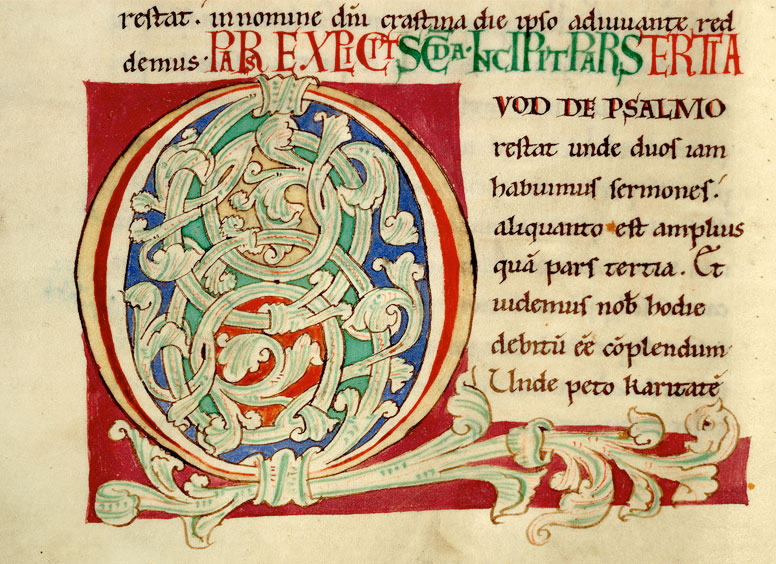 restat. in nomine dn̄i crastina die ipso adiuuante red
demus. PARS EXPLICIT SCDA. INCIPIT PARS TERTIA
QVOD DE PSALMO
restat unde duos iam
habuimus sermones.
aliquanto est amplius
quā pars tertia. Et
uidemus nob̄ hodie
debitū eē cōplendum
Unde peto karitatē